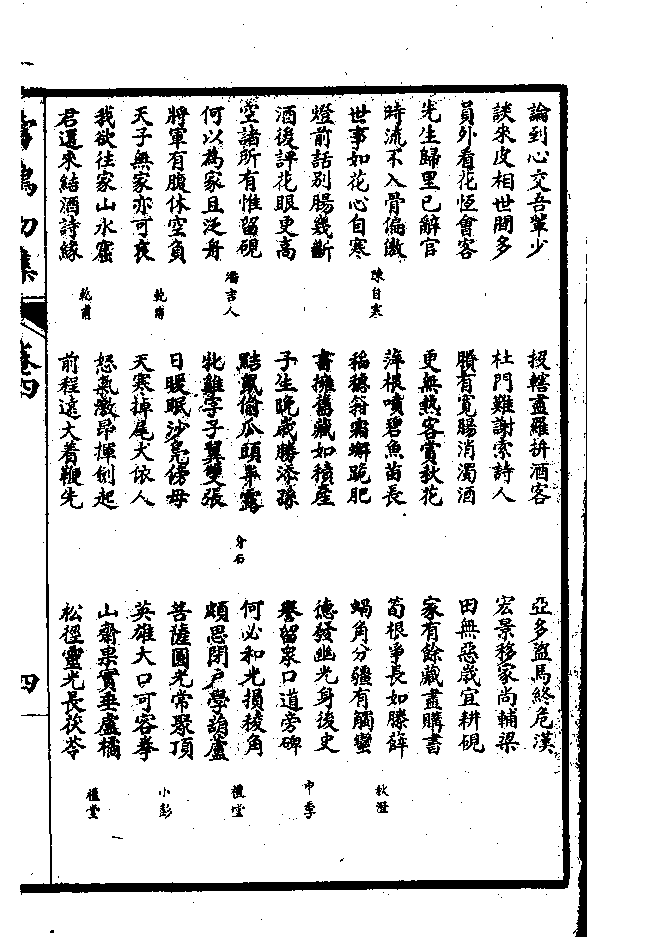 論到心交吾輩少
談來皮相世間多
員外看花恆會客
先生歸里已辭官
時流不入骨偏傲
世事如花心自寒
陳自寒
燈前話別腸幾斷
酒後評花眼更高
空諸所有惟留硯
何以為家且泛舟
潘言人
將軍有腹休空負
天子無家亦可哀
乾甫
我欲往家山水窟
君還來結酒詩緣
乾甫
投轄盡羅拚酒客
杜門難謝索詩人
賸有寬腸消濁酒
更無熱客賞秋花
萍根噴碧魚苗長
稻穗翁霜蠏跪肥
書擁舊藏如積產
子生晚歲勝添孫
黠鼠偷瓜頭暴露
牝雞字子翼雙張
身石
日暖眠沙鳧傍母
天寒掉尾犬依人
怒氣激昂揮劍起
前程遠大着鞭先
亞多盜馬終危漢
宏景移家尚輔梁
田無惡歲宜耕硯
家有餘藏盡購書
筍根爭長如滕薛
蝸角分疆有觸蠻
秋澄
德發幽光身後史
譽留眾口道旁碑
中季
何必和光損稜角
頗思閉戶學葫蘆
禮堂
菩薩圓光常聚頂
英雄大口可容拳
小彭
山齋果實垂盧橘
松徑靈光長茯苓
禮堂
集
卷四
四